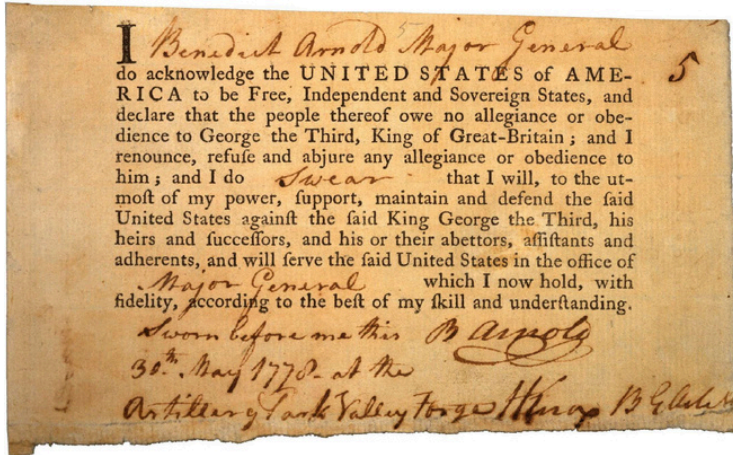 I Benedict Arnold Major General
do acknowledge the UNITED STATES of AME-
RICA to be Free, Independent and Sovereign States, and
declare that the people thereof owe no allegiance or obe-
dience to George the Third, King of Great-Britain ; and I
renounce, refuſe and abjure any allegiance or obedience to
him ; and I do Swear that I will, to the ut-
moſt of my power, ſupport, maintain and defend the ſaid
United States againſt the ſaid King George the Third, his
heirs and ſucceſſors, and his or their abettors, aſſiſtants and
adherents, and will ſerve the ſaid United States in the office of
Major General which I now hold, with
fidelity, according to the beſt of my ſkill and underſtanding.
Sworn before me this B Arnold
30th. May 1778 - at the
Artillery Park Valley Forge HKnox B G
5